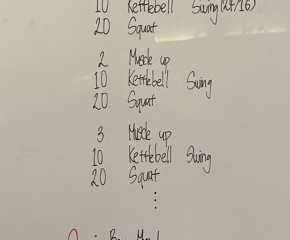 10 Kettlebell Swing (24/16)
20 Squat
2 Muscle up
10 Kettlebell Swing
20 Squat
3 Muscle up
10 Kettlebell Swing
20 Squat
⋮